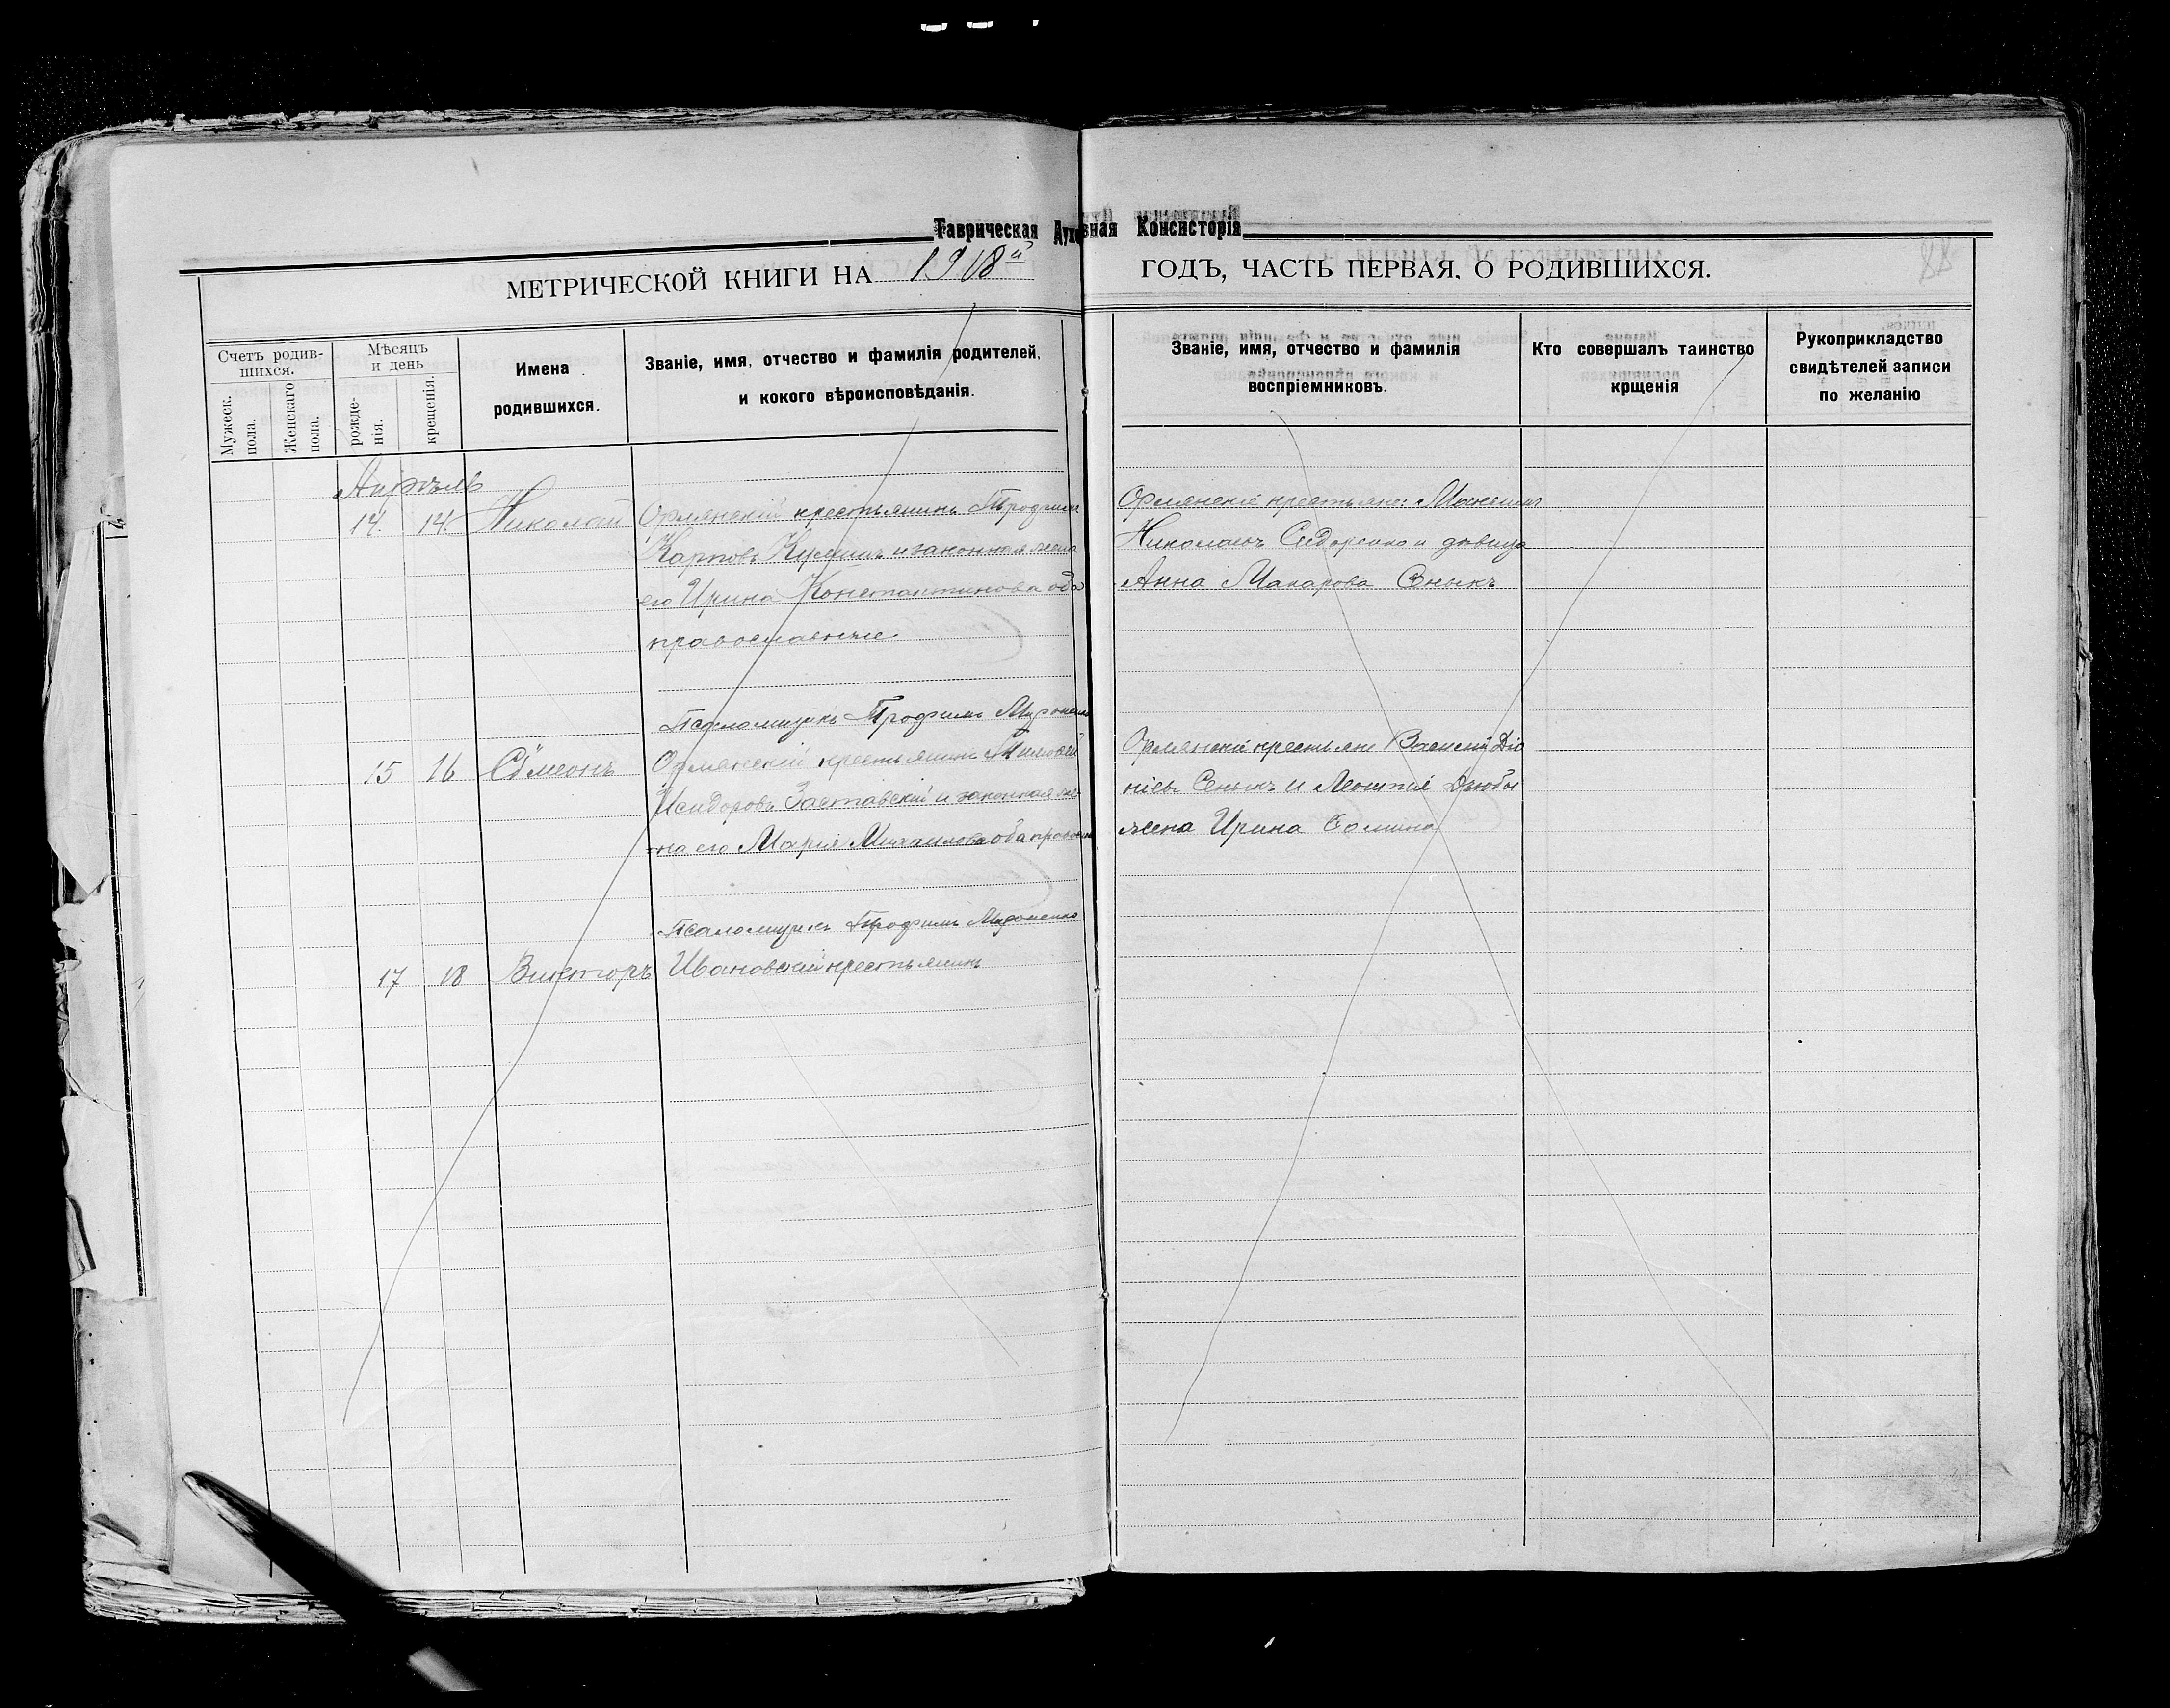 Таврическая Духовная Консисторія
МЕТРИЧЕСКОЙ КНИГИ НА 1918й ГОДЪ, ЧАСТЬ ПЕРВАЯ, О РОДИВШИХСЯ.
88
Счетъ родив-
шихся.
Мужеск.
пола.
Женскаго
пола.
Мѣсяцъ
и день
рожде-
нія.
крещенія.
Имена
родившихся.
Званіе, имя, отчество и фамилія родителей,
и кокого вѣроисповѣданія.
Званіе, имя, отчество и фамилія
воспріемниковъ.
Кто совершалъ таинство
крщенія
Рукоприкладство
свидѣтелей записи
по желанію
Апрѣль
14. 14. Николай Ормянскій крестьянинъ Трофимъ
Карповъ и законная жена
его Ирина Константинова оба
православные.
Ормянскіе крестьяне: Максимъ
Николаевъ Сидоренко и дѣвица
Анна Макарова Сныкъ
Псаломщикъ Трофимъ Мироненко
15 16 Сѵмеонъ Ормянскій крестьянинъ Тимофей
Исидоровъ Заставскій и законная же-
на его Марія Михаилова оба
Ормянскіе крестьяне Василій Діо
ніевъ и Леонтія Дзюбы
жена Ирина
Псаломщикъ Трофимъ Мироненко
17 18 Викторъ Ивановскій крестьянинъ